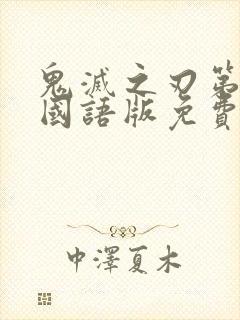 鬼滅之刃第
國語版免費
中澤夏木